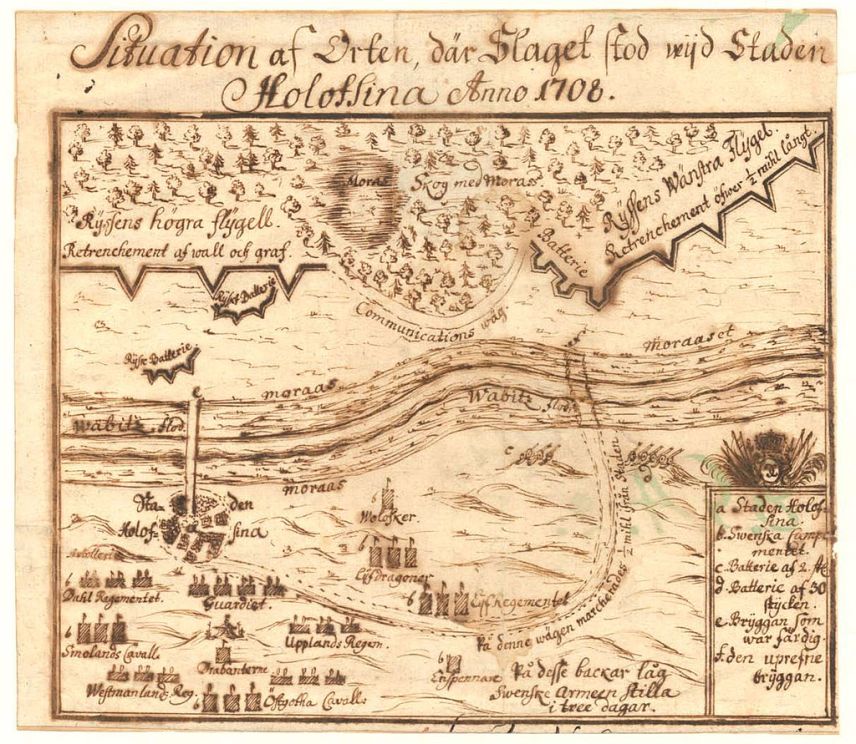 Situation af Orten, där Slaget stod wijd Staden
Holofsina Anno 1708.
Moras
Skog med Moras
Ryssens högra flÿgell.
Retrenchement af wall och graf.
Rÿssens Wänstra Flÿgel.
Retrenchement öfwer ½ mihl långt.
Batterie
Rÿsst Batterie
Communications wäg
Rÿsk Batterie.
e
moraas
Moraaset
Wabitz flod.
Wabitz flod.
moraas
Staden
Holofsina
½ mihl från Staden
På denne wägen marcherades
Wolosker.
6
Lifdragoner
6
Lifregementet
Artollerie
6
Dahl Regementet.
Guardiet.
6
Smolands Cavall.
Drabanterne
Upplands Regem.
Westmanland: Reg.
Östgotha Cavall:
6
Enspennare
På desse backar låg
Swenske Armeen stilla
i tree dagar.
a Staden Holof-
sina.
b. Swenska Camp-
mentet.
c. Batterie af 2. st
d. Batterie af 30
stÿcken.
e. Brÿggan som
war färdig.
f. den uprefne
brÿggan.